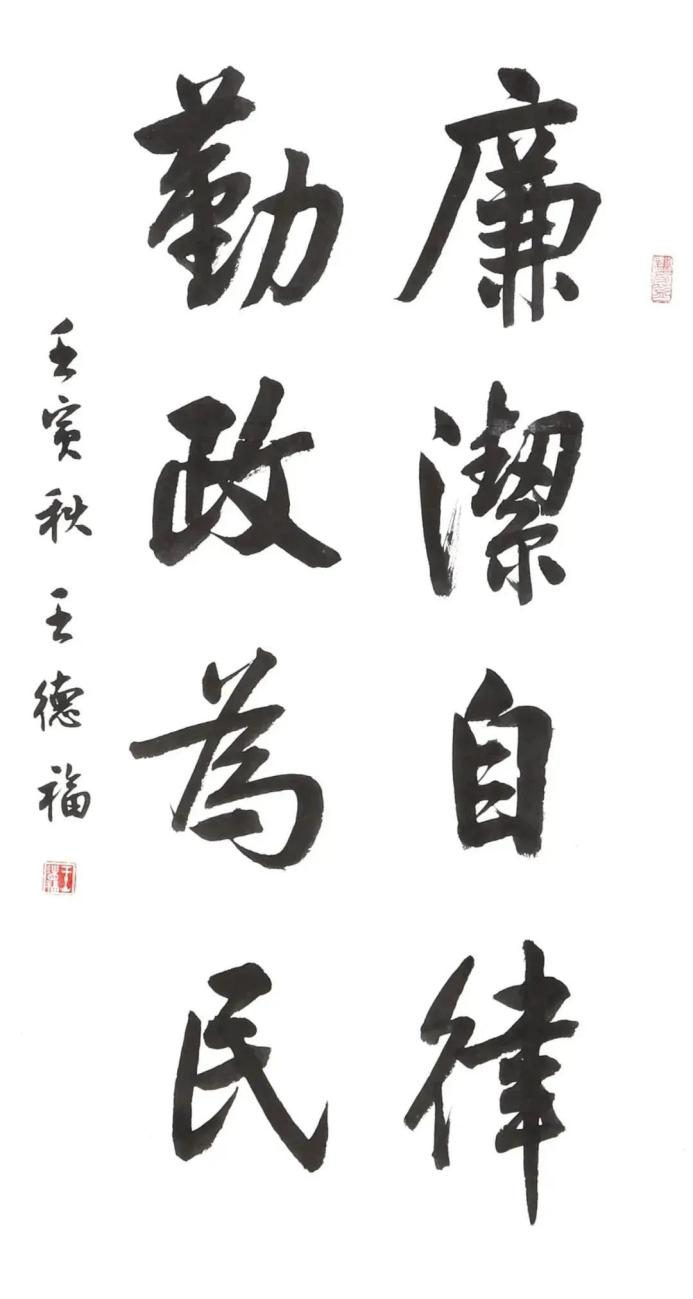 廉潔自律
勤政為民
壬寅秋 王德福